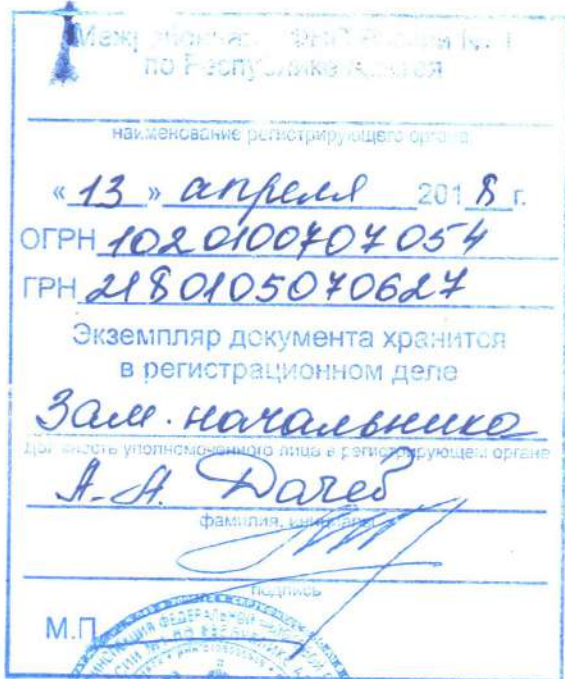 Межрайонная ИФНС России № 1
по Республике Адыгея
наименование регистрирующего органа
« 13 » апреля 2018 г.
ОГРН 1020100707054
ГРН 2180105070627
Экземпляр документа хранится
в регистрационном деле
Зам. начальника
должность уполномоченного лица в регистрирующем органе
А.А.
фамилия, инициалы
подпись
М.П.